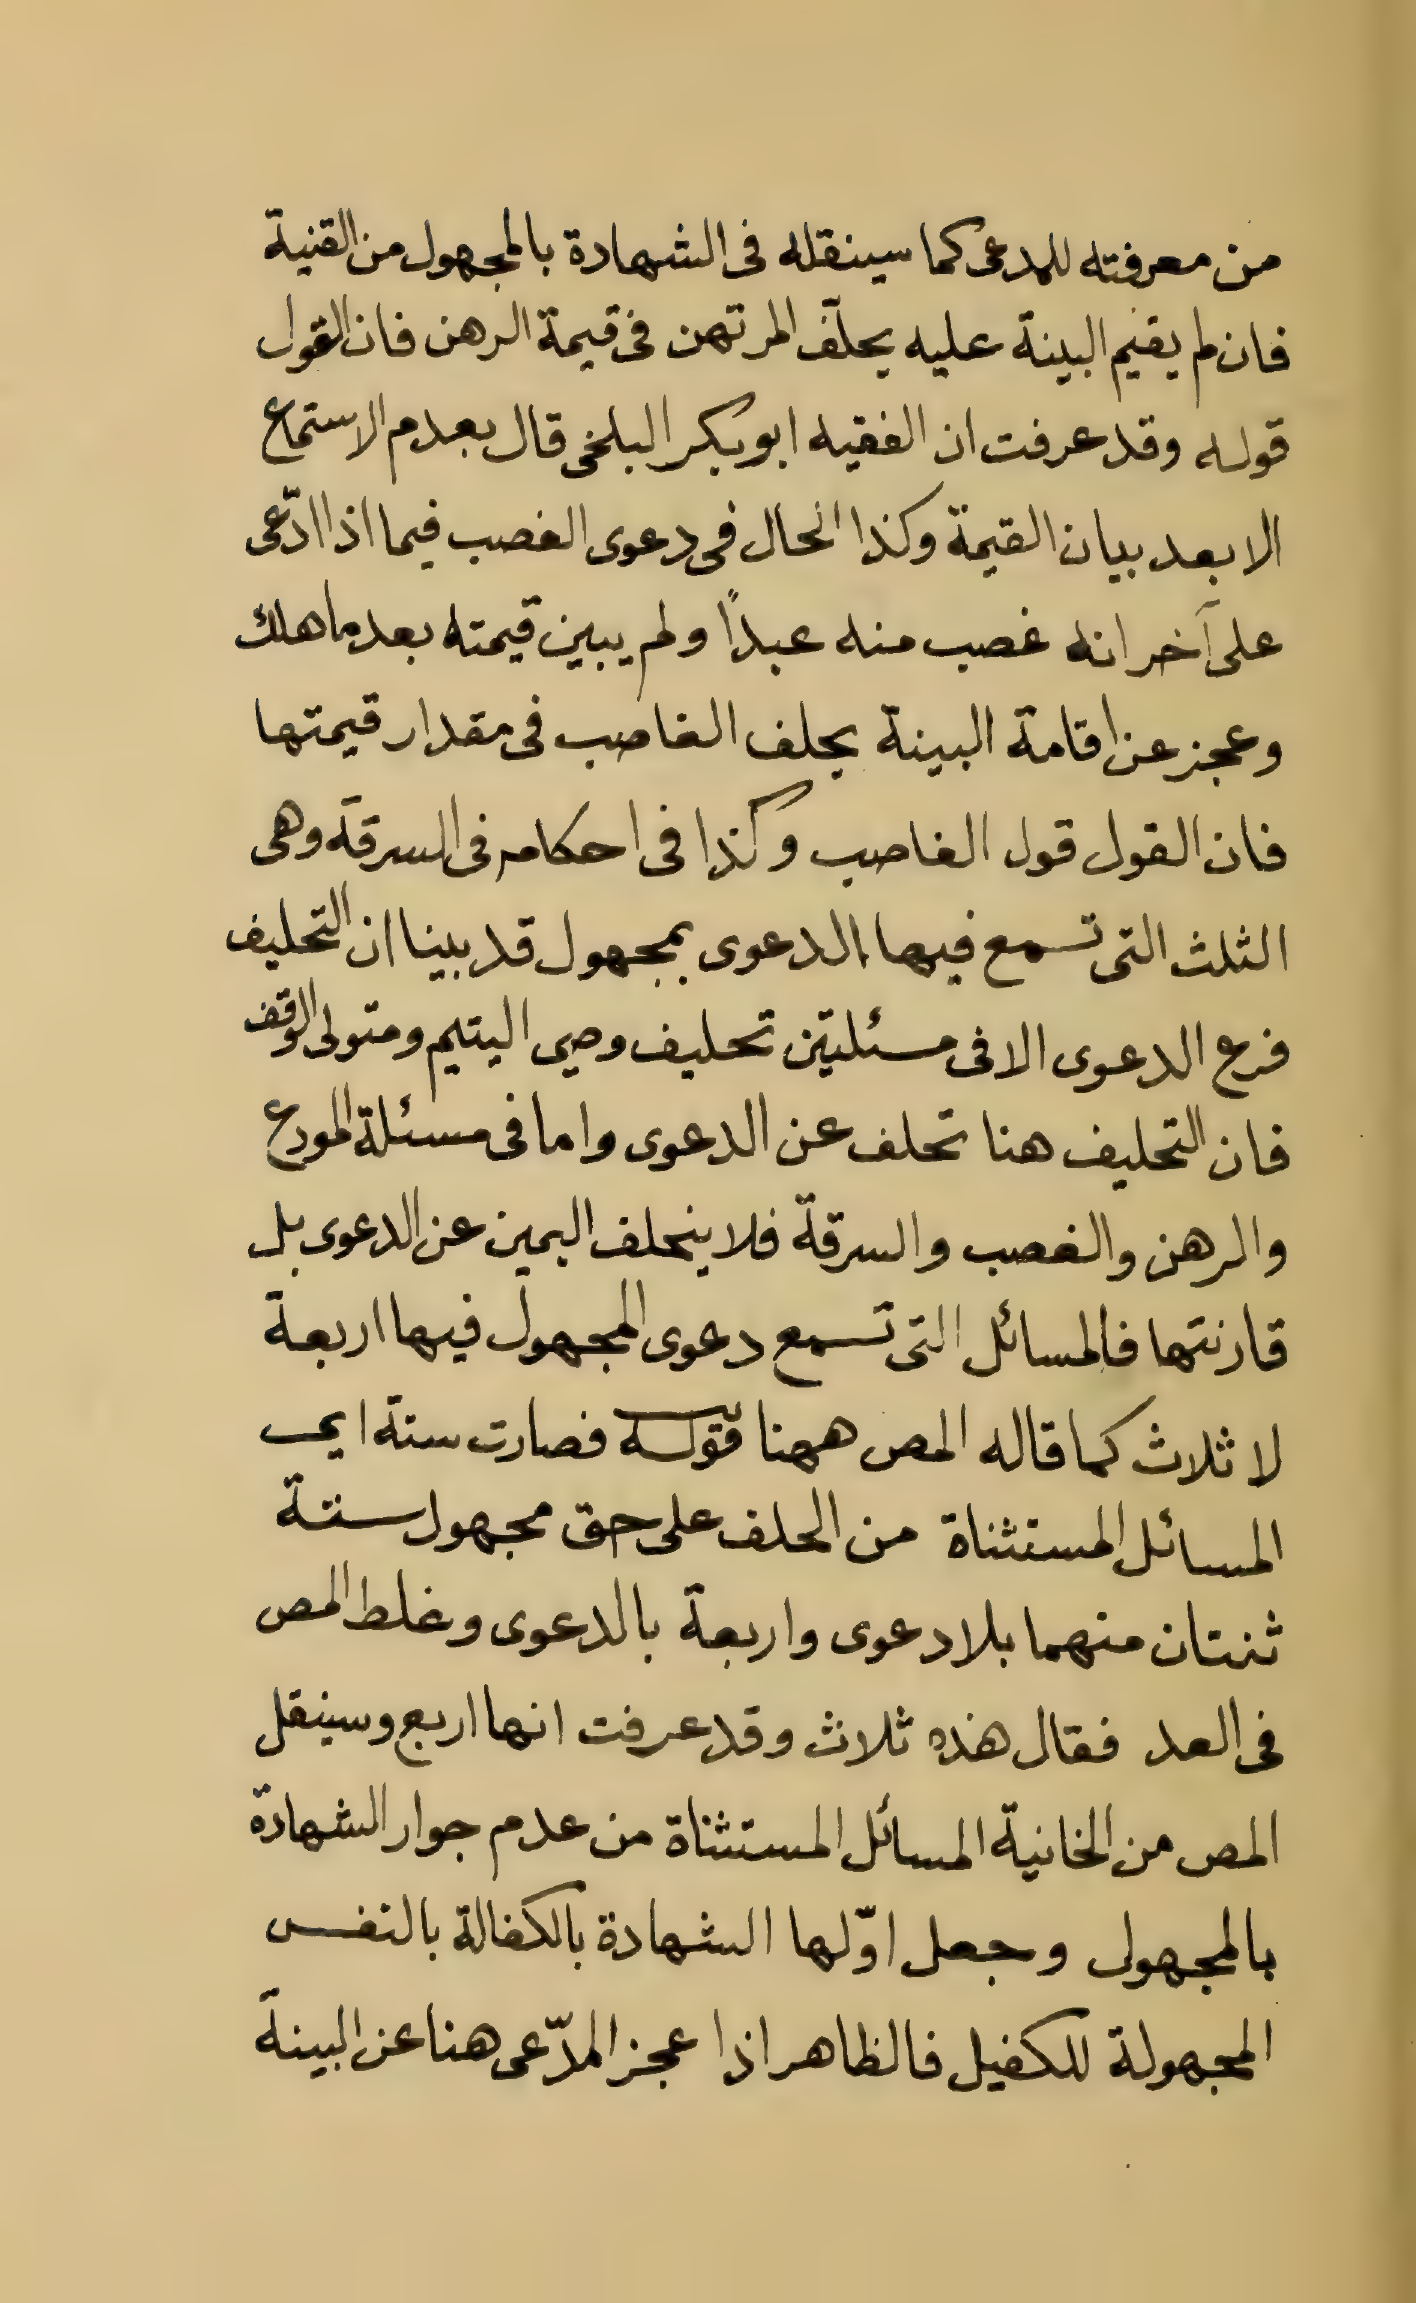 من معرفته للمدعى كما سينقله فى الشهادة بالمجهول من القنية
فان لم يقيم البينة عليه يحلف المرتهن فى قيمة الرهن فان القول
قوله وقد عرفت ان الفقيه ابو بكر البلخى قال بعدم الاستماع
الا بعد بيان القيمة وكذا الحال فى دعوى الغصب فيما اذا ادّعى
على آخر انه غصب منه عبدًا ولم يبين قيمته بعد ما هلك
وعجز عن اقامة البينة يحلف الغاصب فى مقدار قيمتها
فان القول قول الغاصب وكذا فى احكامه فى السرقة وهى
الثلث التى تسمع فيها الدعوى بمجهول قد بينا ان التحليف
فرع الدعوى الا فى مسئلتين تحليف وصى اليتيم ومتولى الوقف
فان التحليف هنا تخلف عن الدعوى واما فى مسئلة المودع
والرهن والغصب والسرقة فلا يتخلف اليمين عن الدعوى بل
قارنتها فالمسائل التى تسمع دعوى المجهول فيها اربعة
لا ثلاث كما قاله المص ههنا قوله فصارت ستة ايى
المسائل المستثناة من الحلف على حق مجهول ستة
ثنتان منهما بلا دعوى واربعة بالدعوى وغلط المص
فى العد فقال هذه ثلاث وقد عرفت انها اربع وسينقل
المص من الخانية المسائل المستثناة من عدم جوار الشهادة
بالمجهول وجعل اوّلها الشهادة بالكفالة بالنفس
المجهولة للكفيل فالظاهر اذا عجز المدّعى هنا عن البينة